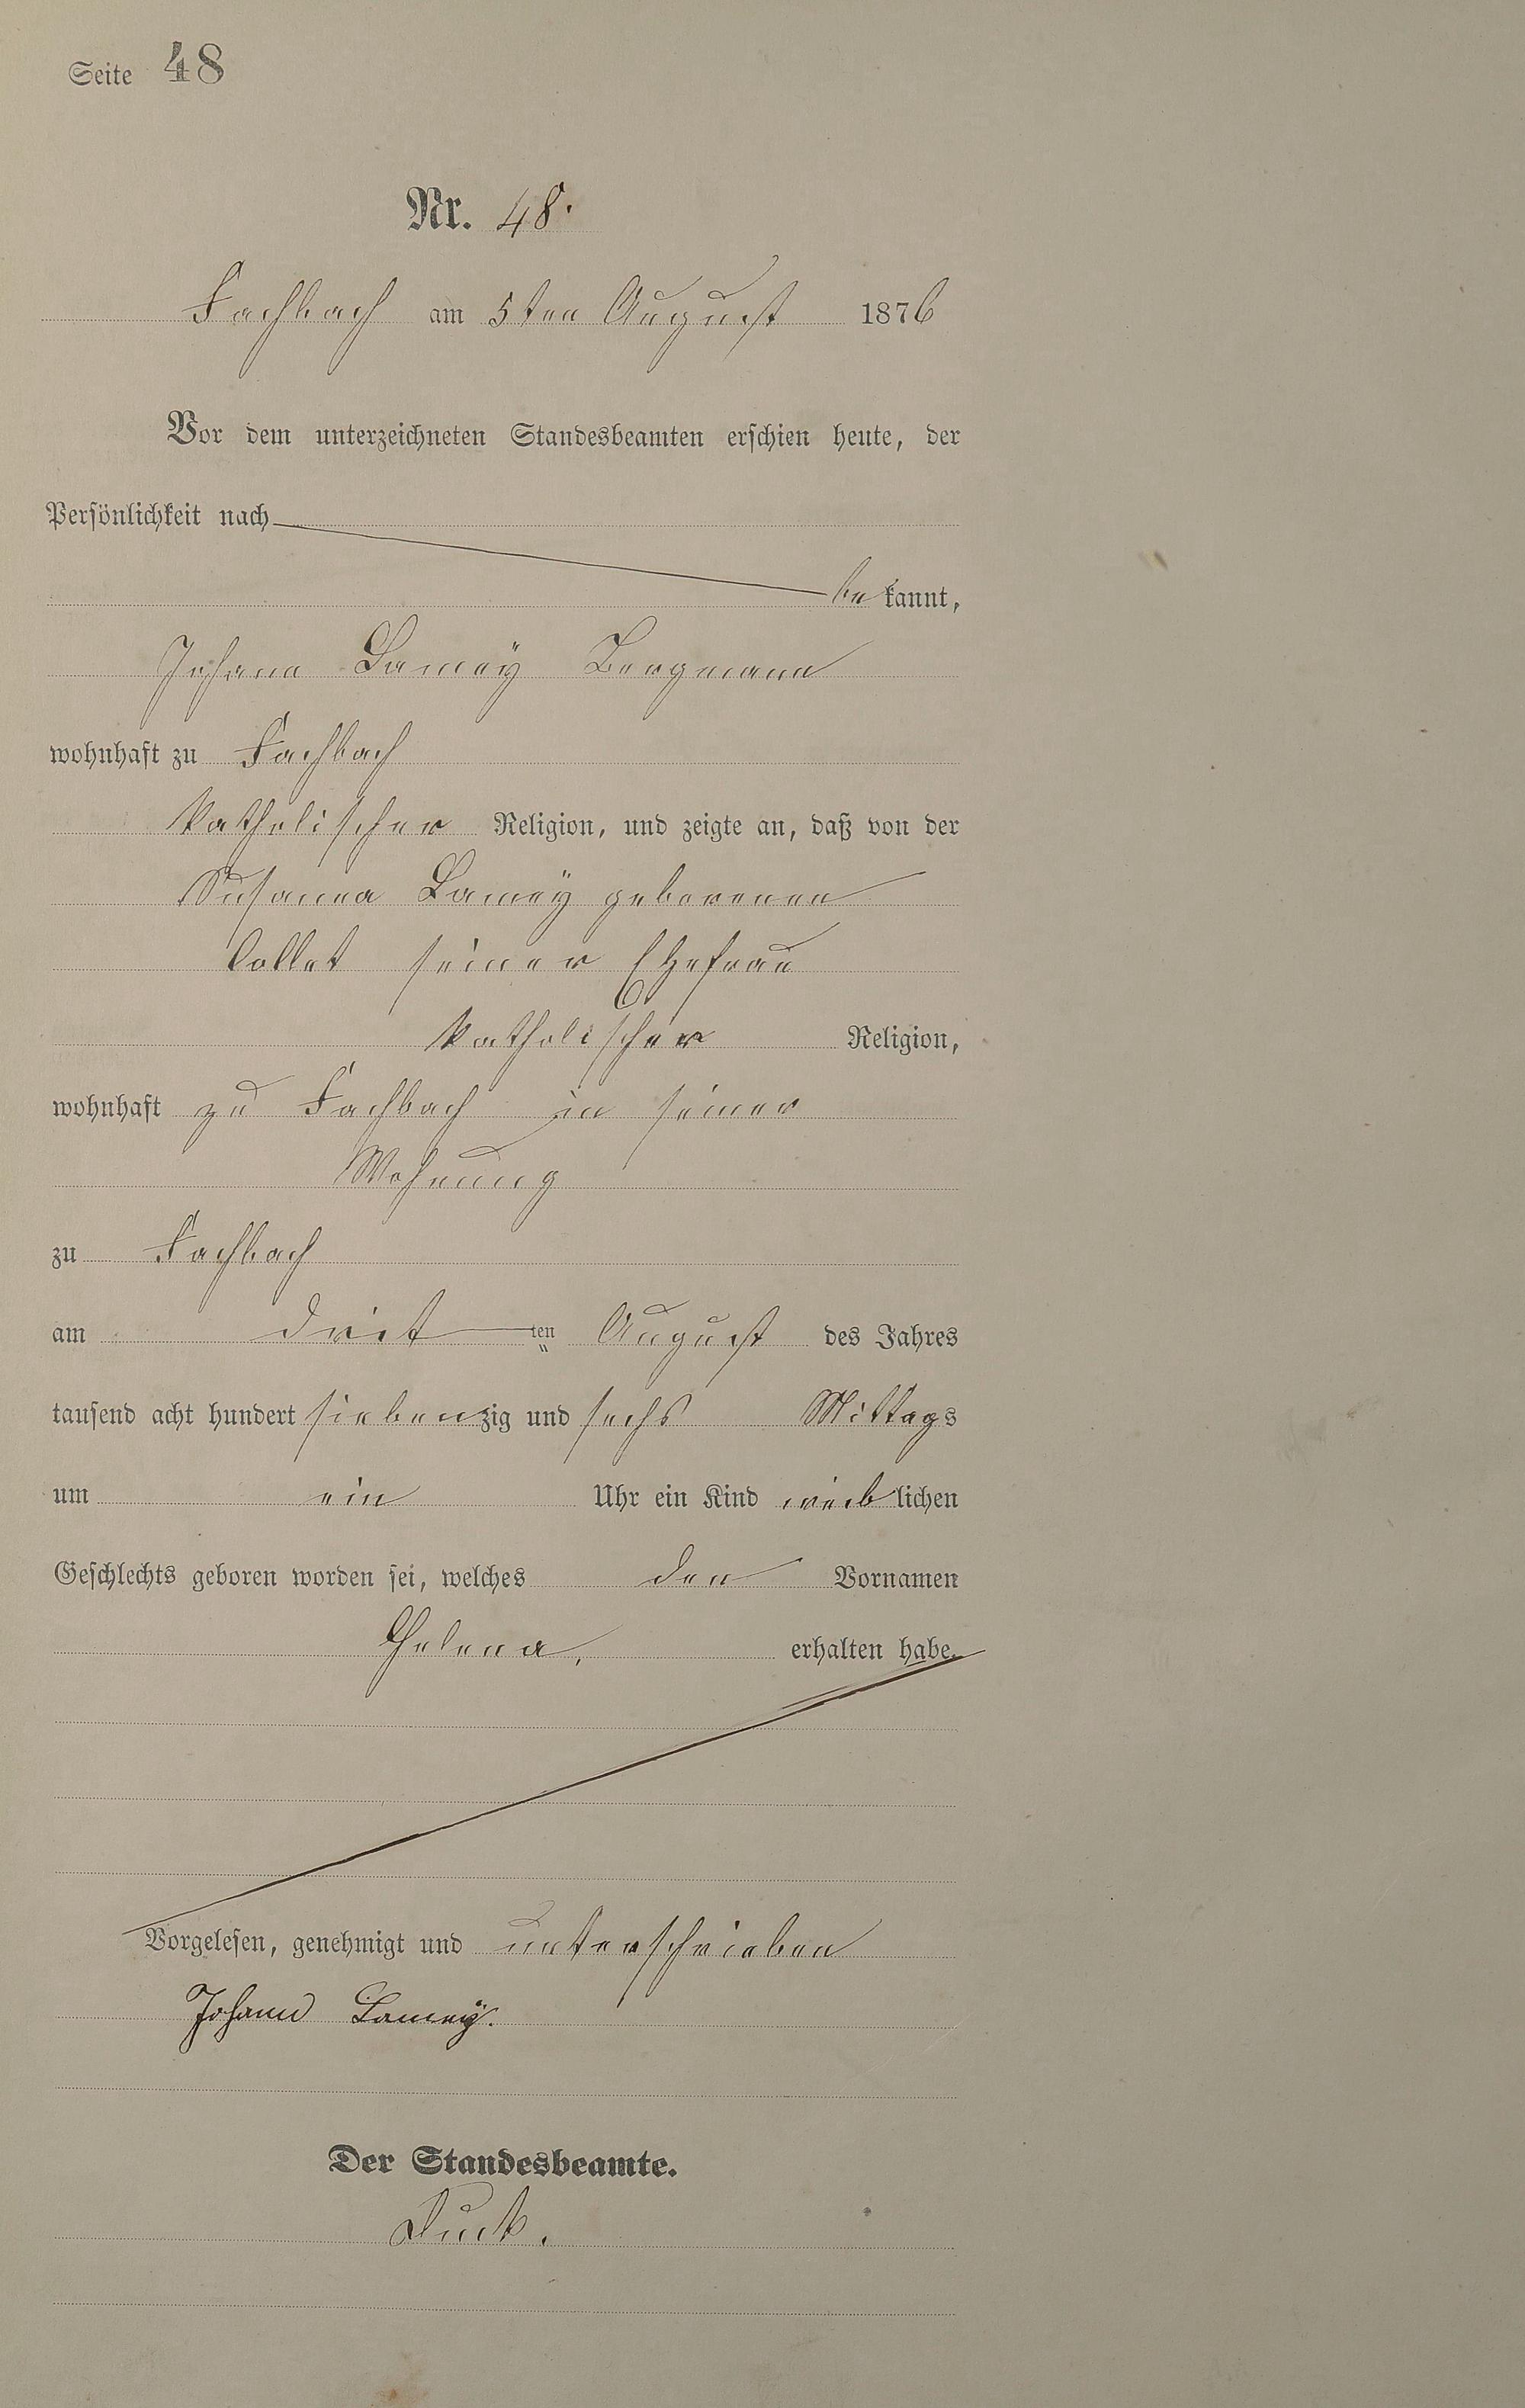 Seite 48
Nr. 48.
Fachbach am 5ten August 1876
Vor dem unterzeichneten Standesbeamten erschien heute, der
Persönlichkeit nach
bekannt,
Johann Lamey Bergmann
wohnhaft zu Fachbach
katholischer Religion, und zeigte an, daß von der
Susanna Lamey geborenen
Collet seiner Ehefrau
katholischer Religion,
wohnhaft zu Fachbach in seiner
Wohnung
zu Fachbach
am drit ten August des Jahres
tausend acht hundert siebenzig und sechs Mittags
um ein Uhr ein Kind weiblichen
Geschlechts geboren worden sei, welches den Vornamen
Helena, erhalten habe.
Vorgelesen, genehmigt und unterschrieben
Johann Lamey.
Der Standesbeamte.